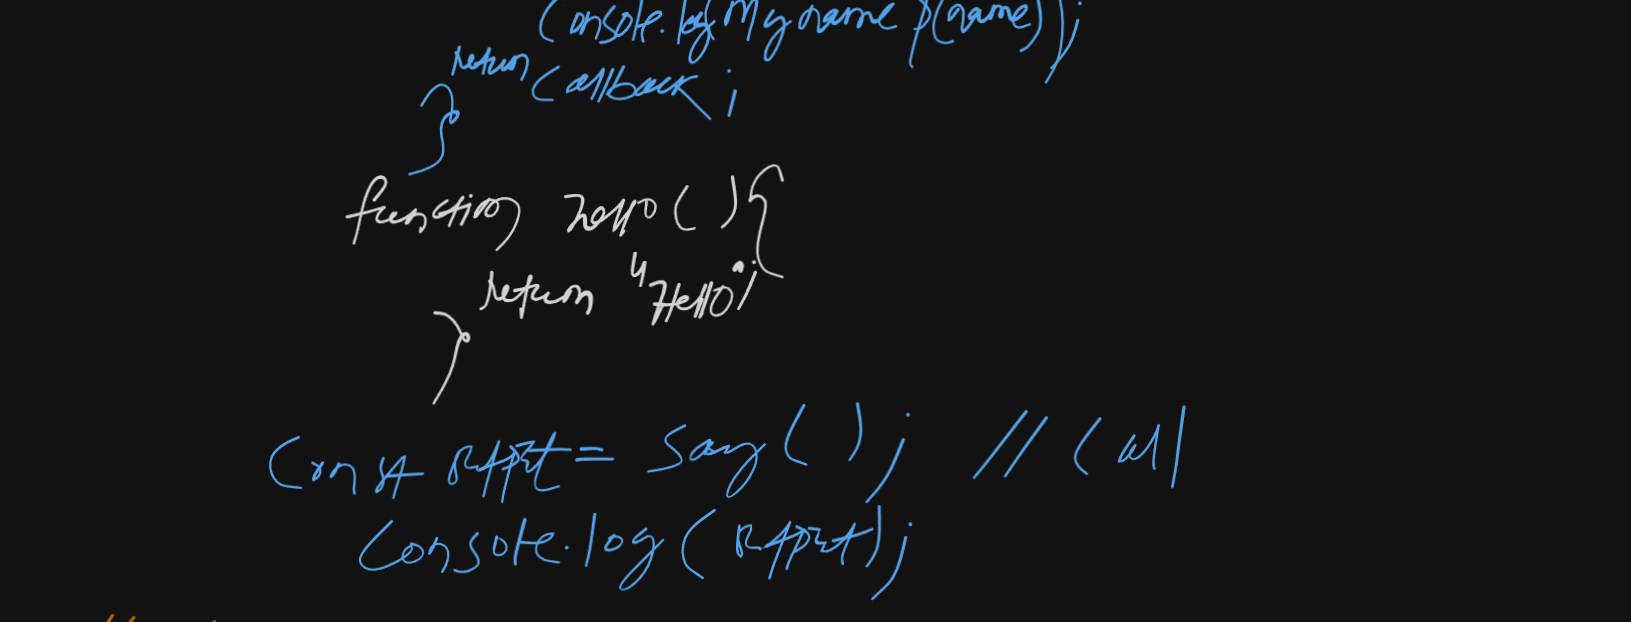 Console.log(My name ${name});
return callback;
}
function hello(){
return "Hello";
}
const = say(); // call
console.log();